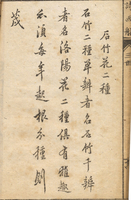 石竹花二種
石竹二種單瓣者名石竹千瓣
者名洛陽花二種俱有雅趣
亦須每年起根分種則
茂